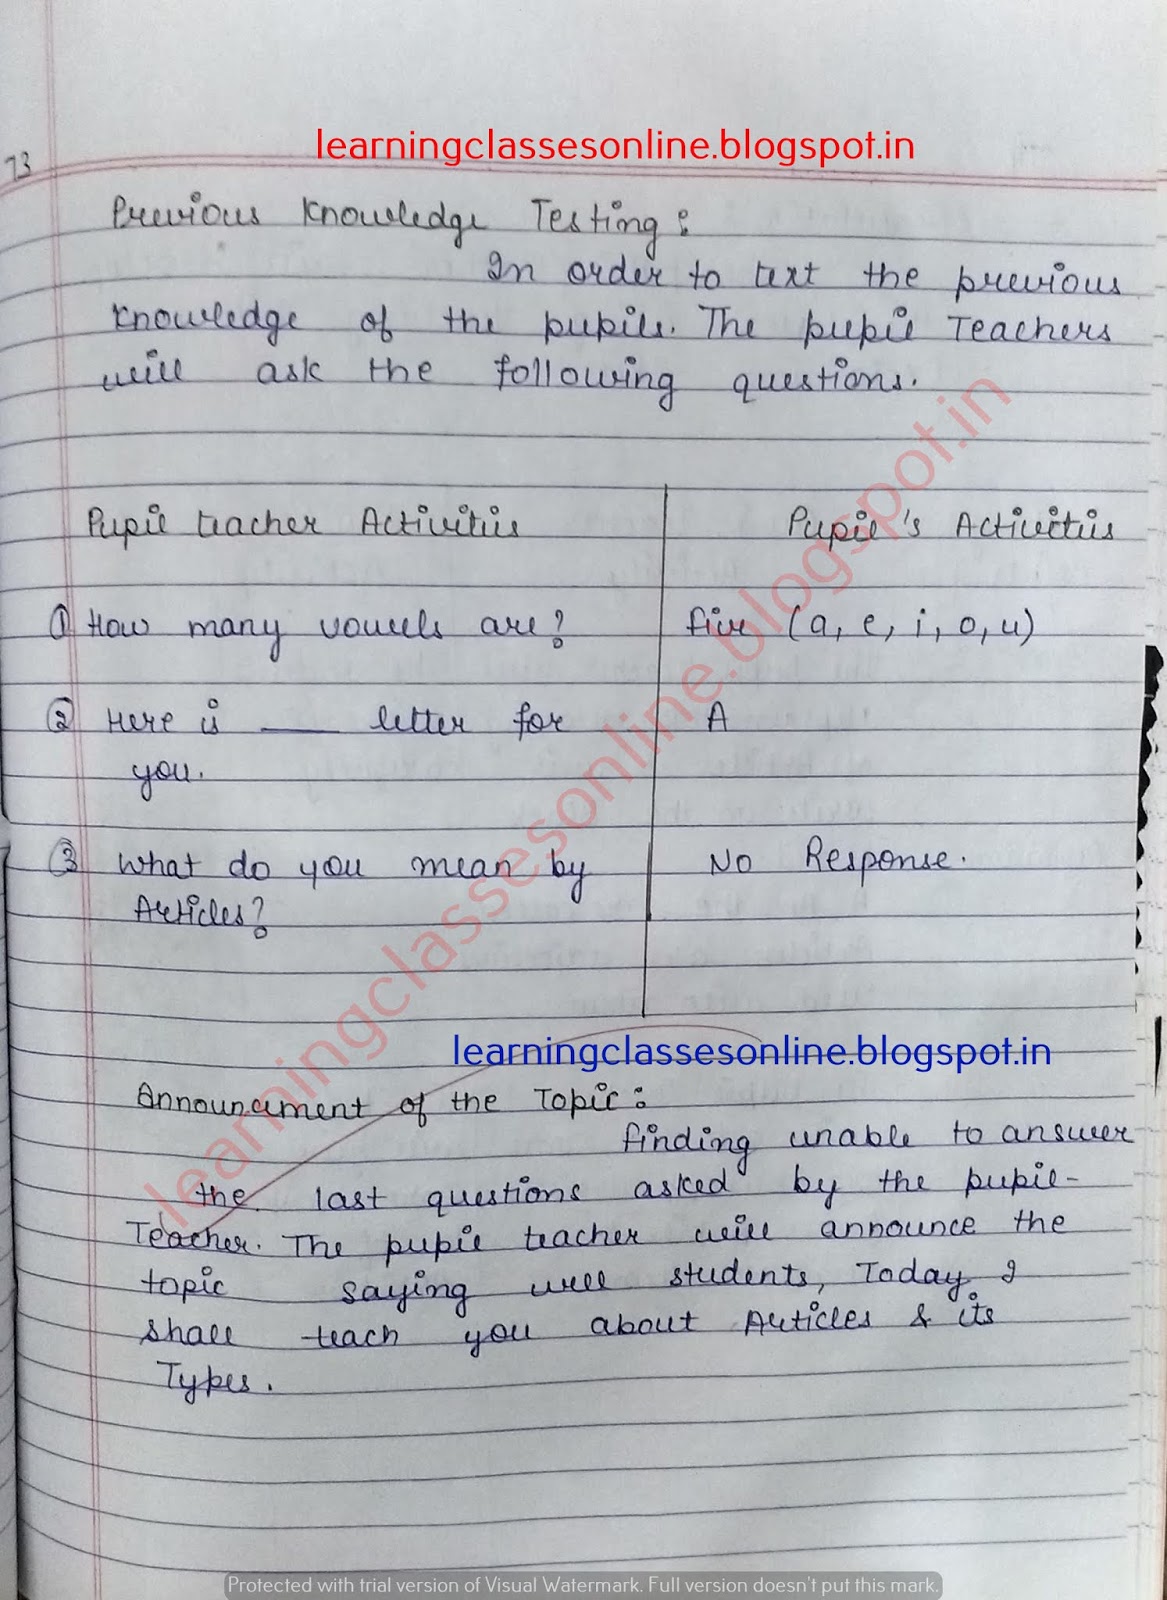 learningclassesonline.blogspot.in
73
Previous Knowledge Testing:
In order to text the previous
knowledge of the pupils. The pupil Teachers
will ask the following questions.
Pupil teacher Activities Pupil's Activities
① How many vowels are? five (a, e, i, o, u)
② Here is ___ letter for A
you.
③ What do you mean by No Response.
Articles?
learningclassesonline.blogspot.in
learningclassesonline.blogspot.in
Announcement of the Topic:
finding unable to answer
the last questions asked by the pupil-
Teacher. The pupil teacher will announce the
topic saying well students, Today I
shall teach you about Articles & its
Types.
Protected with trial version of Visual Watermark. Full version doesn't put this mark.